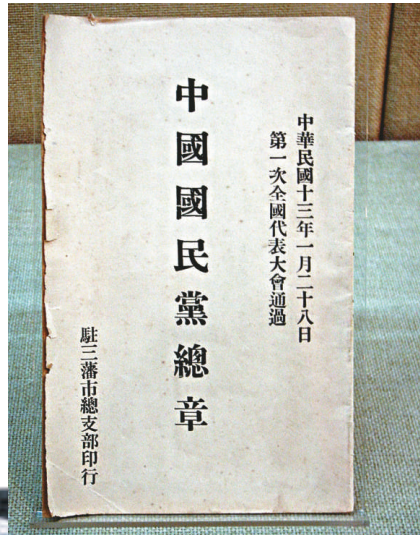 中華民國十三年一月二十八日
第一次全國代表大會通過
中國國民黨總章
駐三藩市總支部印行